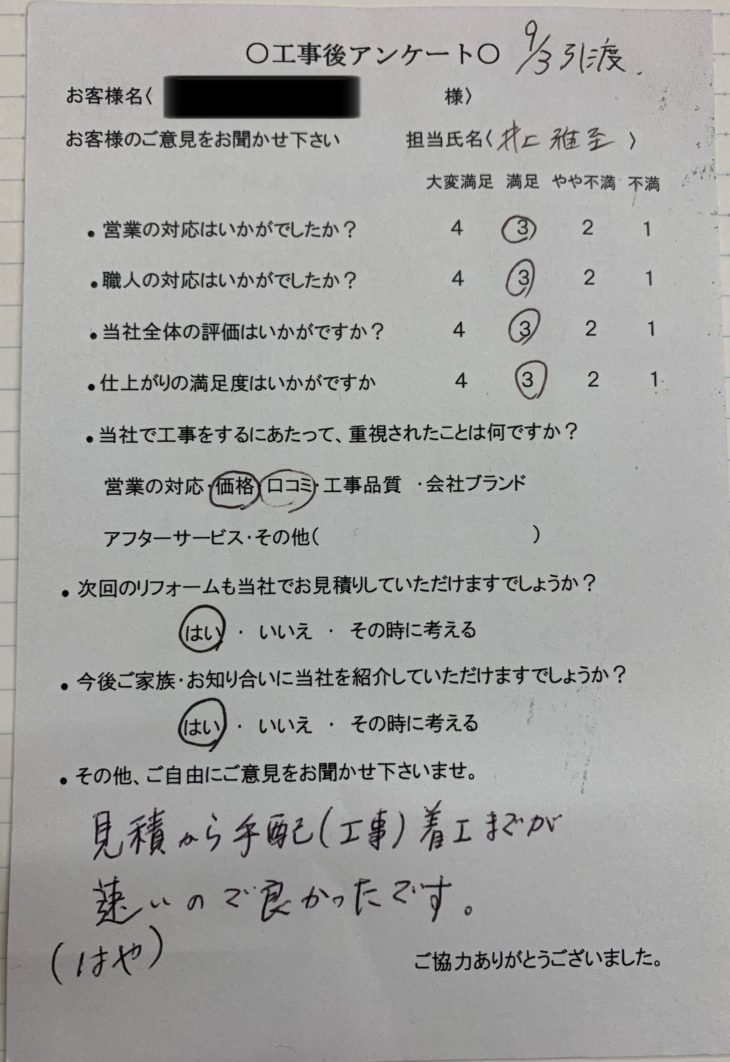 〇工事後アンケート〇 9/3引渡.
お客様名〈 様〉
お客様のご意見をお聞かせ下さい 担当氏名〈井上 雅至 〉
大変満足 満足 やや不満 不満
・営業の対応はいかがでしたか? 4 3 2 1
・職人の対応はいかがでしたか? 4 3 2 1
・当社全体の評価はいかがですか? 4 3 2 1
・仕上がりの満足度はいかがですか 4 3 2 1
・当社で工事をするにあたって、重視されたことは何ですか?
営業の対応・価格・口コミ・工事品質 ・会社ブランド
アフターサービス・その他( )
・次回のリフォームも当社でお見積りしていただけますでしょうか?
はい ・ いいえ ・ その時に考える
・今後ご家族・お知り合いに当社を紹介していただけますでしょうか?
はい ・ いいえ ・ その時に考える
・その他、ご自由にご意見をお聞かせ下さいませ。
見積から手配(工事)着工までが
速いので良かったです。
(はや)
ご協力ありがとうございました。